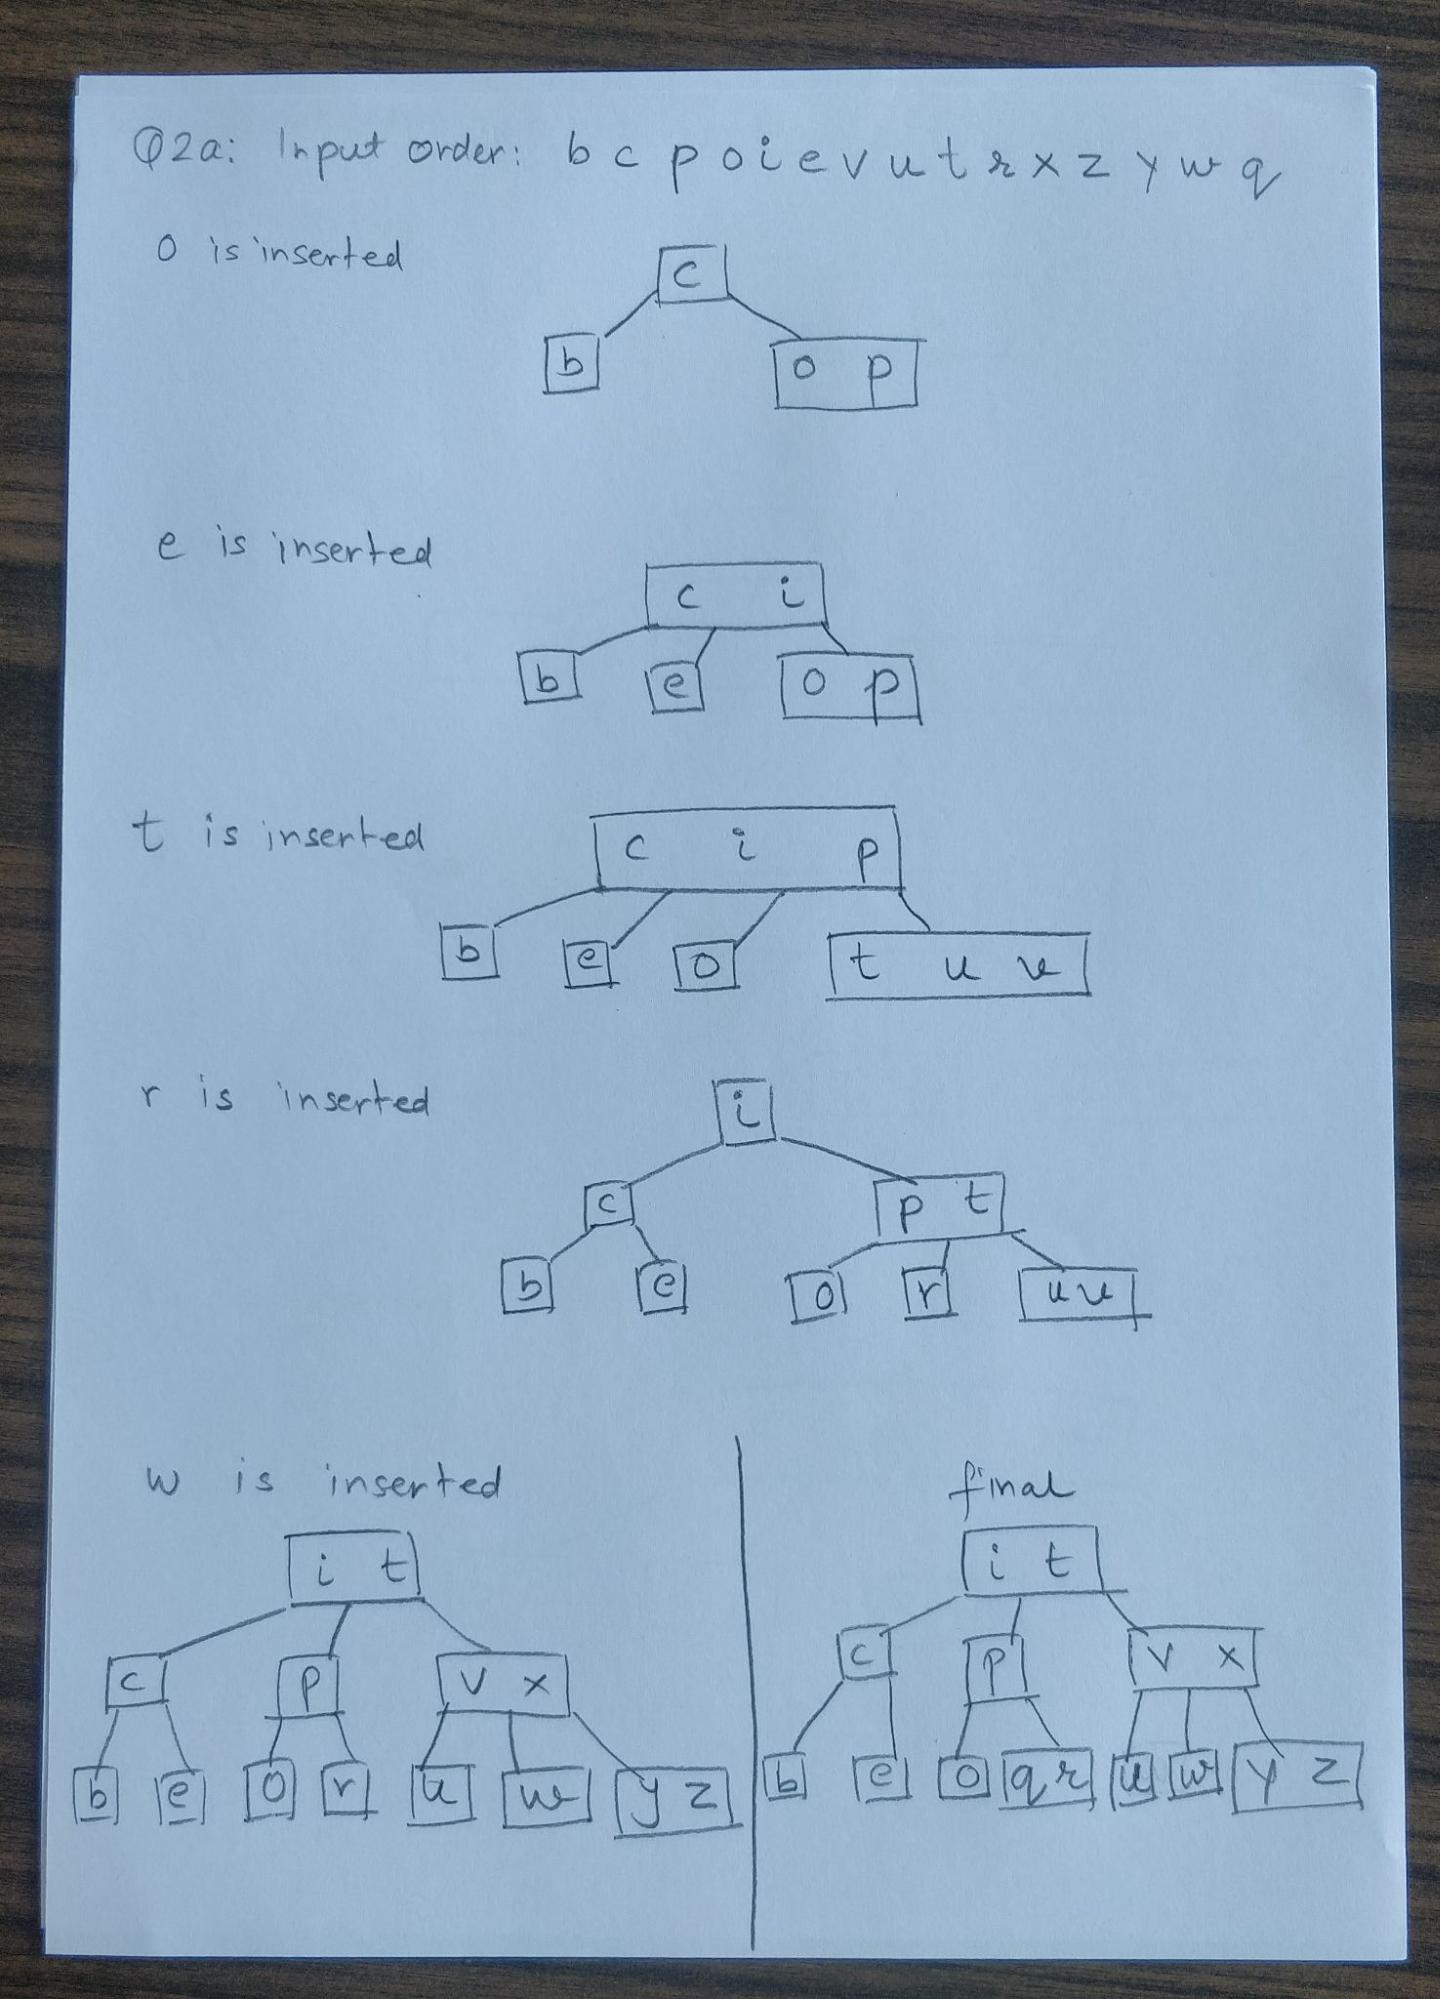 Q2a: Input order: b c p o i e v u t r x z y w q
o is inserted
c
b o p
e is inserted
c i
b e o p
t is inserted
c i p
b e o t u v
r is inserted
i
c p t
b e o r u v
w is inserted
i t
c p v x
b e o r u w y z
final
i t
c p v x
b e o q r u w y z